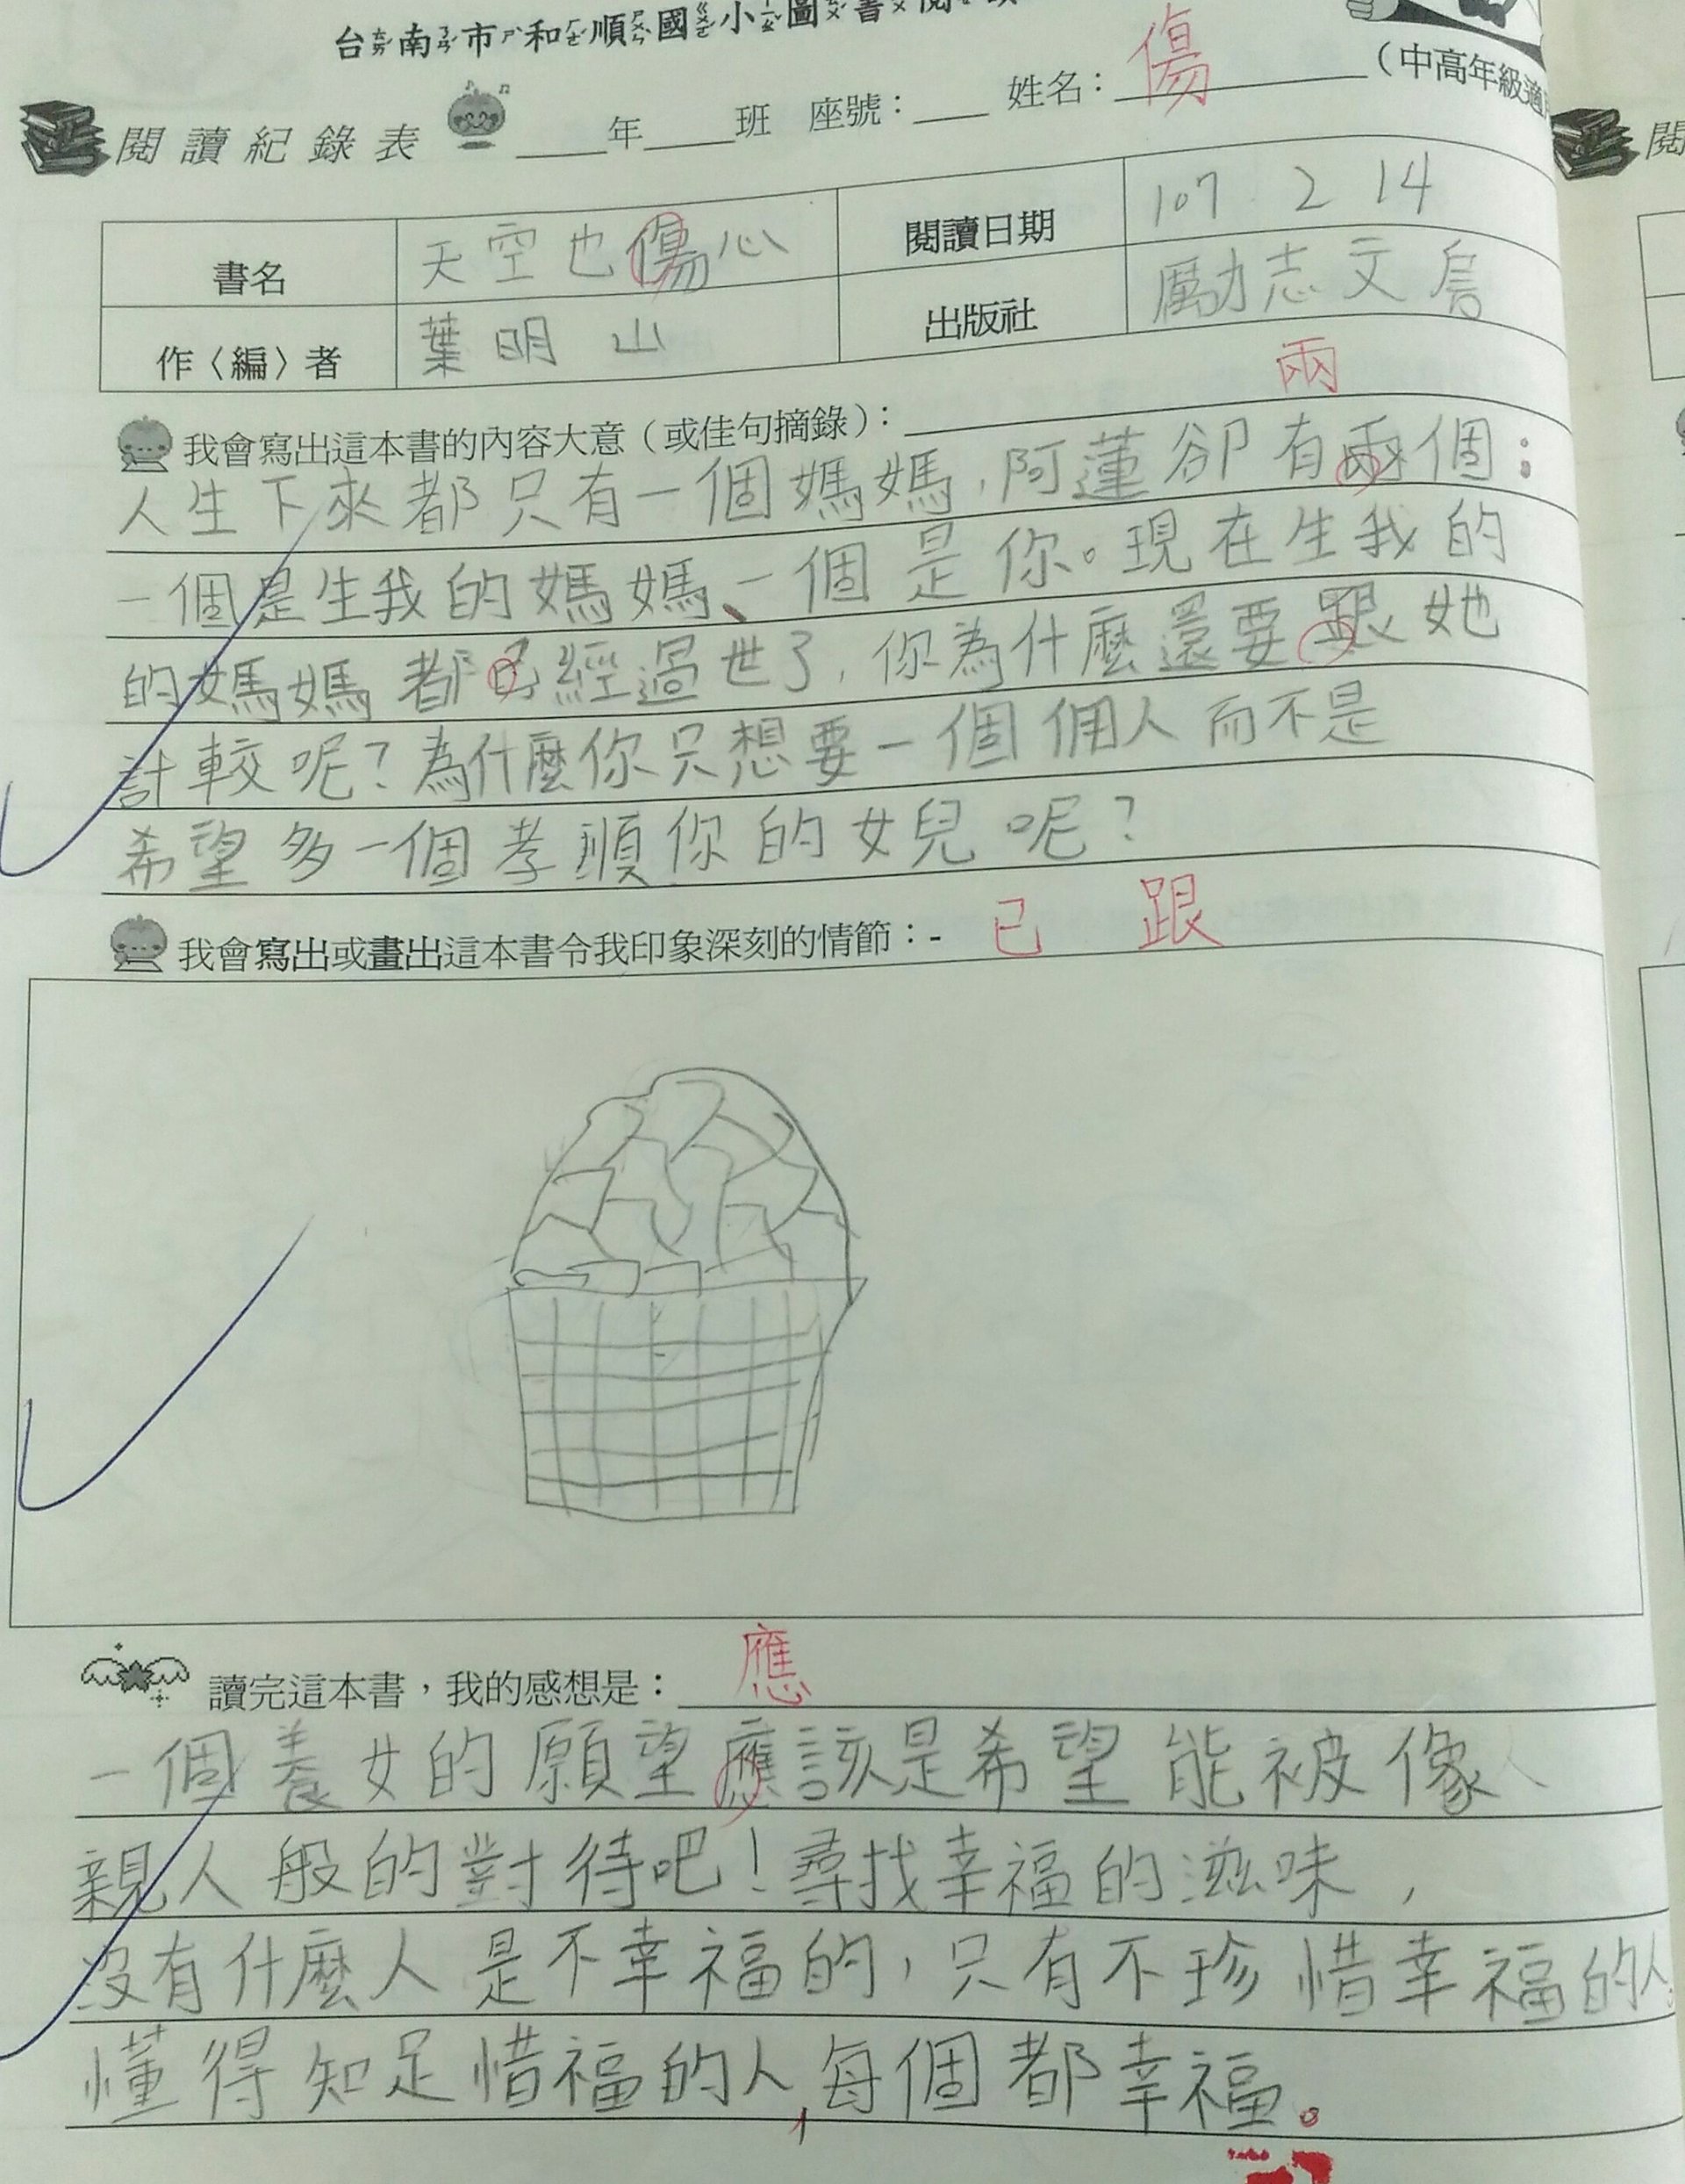 台南市和順國小圖書閱
閱讀紀錄表 年 班 座號： 姓名： 傷 （中高年級適
書名 天空也傷心 閱讀日期 107 2 14
作〈編〉者 葉明山 出版社 勵志文房
兩
我會寫出這本書的內容大意（或佳句摘錄）：
人生下來都只有一個媽媽，阿蓮卻有兩個：
一個是生我的媽媽、一個是你。現在生我的
的媽媽都已經過世了，你為什麼還要跟她
計較呢？為什麼你只想要一個佣人而不是
希望多一個孝順你的女兒呢？
我會寫出或畫出這本書令我印象深刻的情節：- 已 跟
應
讀完這本書，我的感想是：
一個養女的願望應該是希望能被像
親人般的對待吧！尋找幸福的滋味，
沒有什麼人是不幸福的，只有不珍惜幸福的人。
懂得知足惜福的人，每個都幸福。
閱